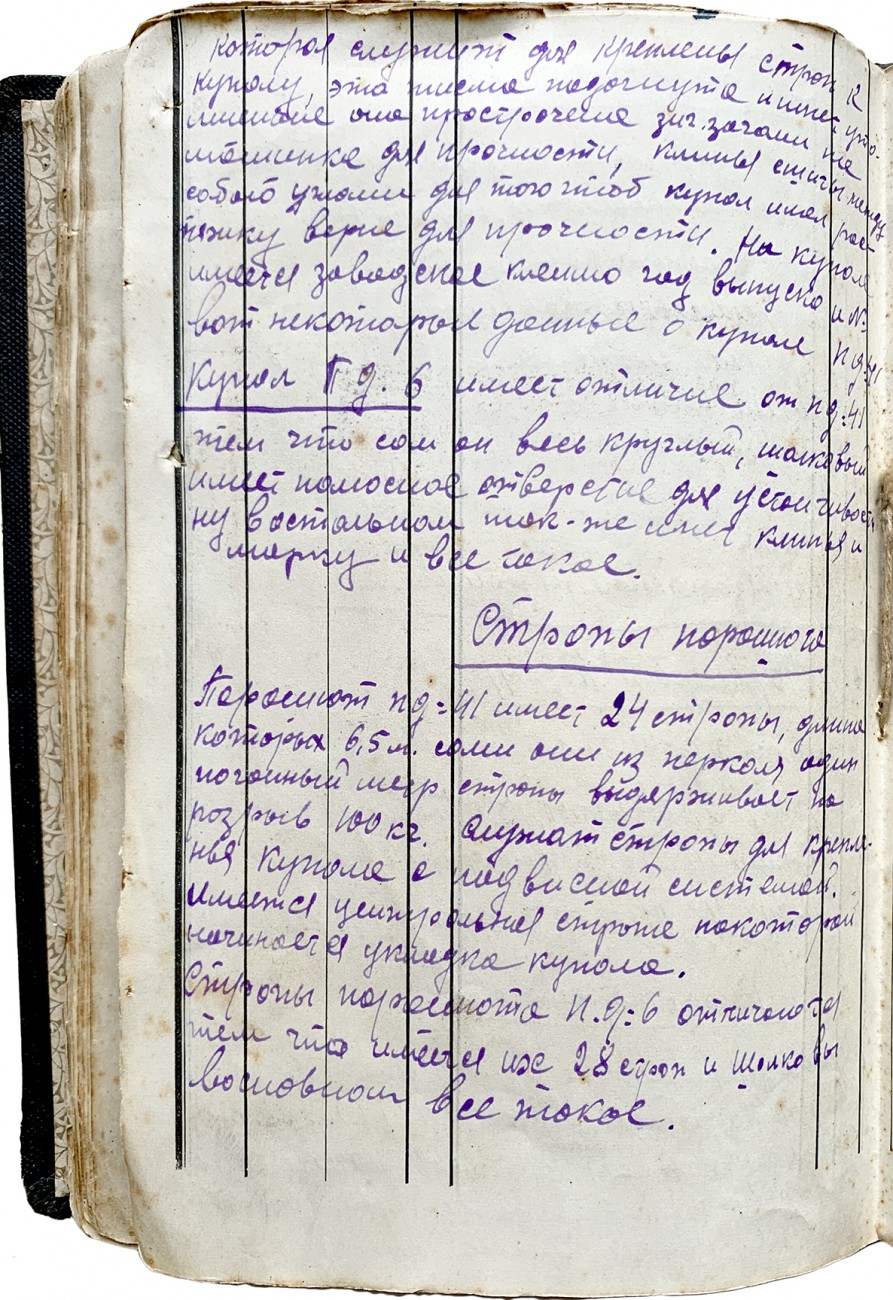 которая служит для крепленья строп к
куполу, эта тесьма подогнута и имеет уто-
лщенье она прострочена зиг.загами на
машинке для прочности, клинья сшиты между
собой узлами для того чтоб купол имел рас
тяжку верне для прочности. На куполе
имеется заводское клеймо год выпуска и №.
вот некоторые данные о куполе пд-41
Купол Пд. 6 имеет отличие от пд-41
тем что сам он весь круглый, шолковый
имеет полюсное отверстие для устойчивости
ну востальном так-же имет клинья и
марку и все такое.
Стропы парашюта
Парашют пд-41 имеет 24 стропы, длина
которых 6,5 м. сами они из перкаля один
погонный метр стропы выдярживает на
розрыв 100 кг. Служат стропы для крепле-
нья купола с подвисной системой.
Имеется центральная стропа по которой
начинается укладка купола.
Стропы парашюта П.Д-6 отличаются
тем что имеется их 28 строп и шолковы
восновном все такое.